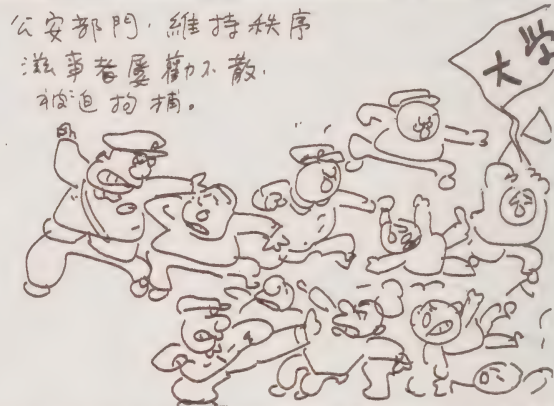 公安部門,維持秩序
滋事者屢勸不散,
被迫拘捕。
大学